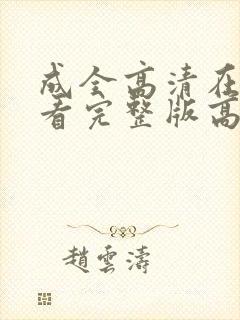 成全高清在
看完整版高
趙雲濤